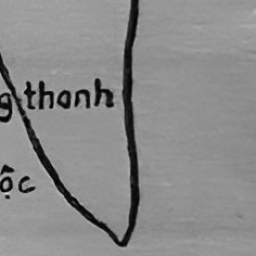 g thanh
ộc